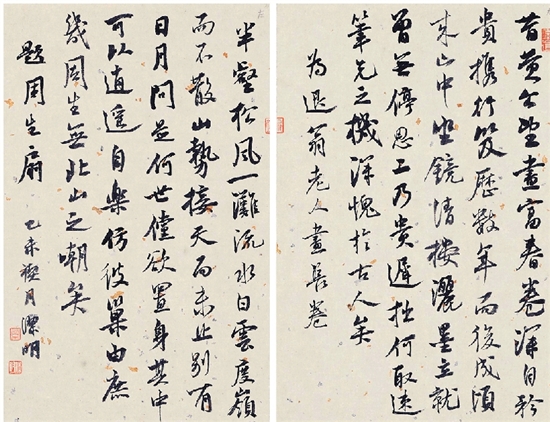 昔黄公望畫富春卷深自矜
貴携行笈歷數年而後成頃
来山中坐鏡清樓灑墨立就
曾無停思工乃貴遲拙何取速
筆先之機深愧於古人矣
為退翁老人畫長卷
半壑松風一灘流水白雲度嶺
而不散山勢接天而未止别有
日月問是何世儻欲置身其中
可以逍遥自樂仿彼巢由庶
幾周生無北山之嘲矣
題周生扇
乙未 月 明